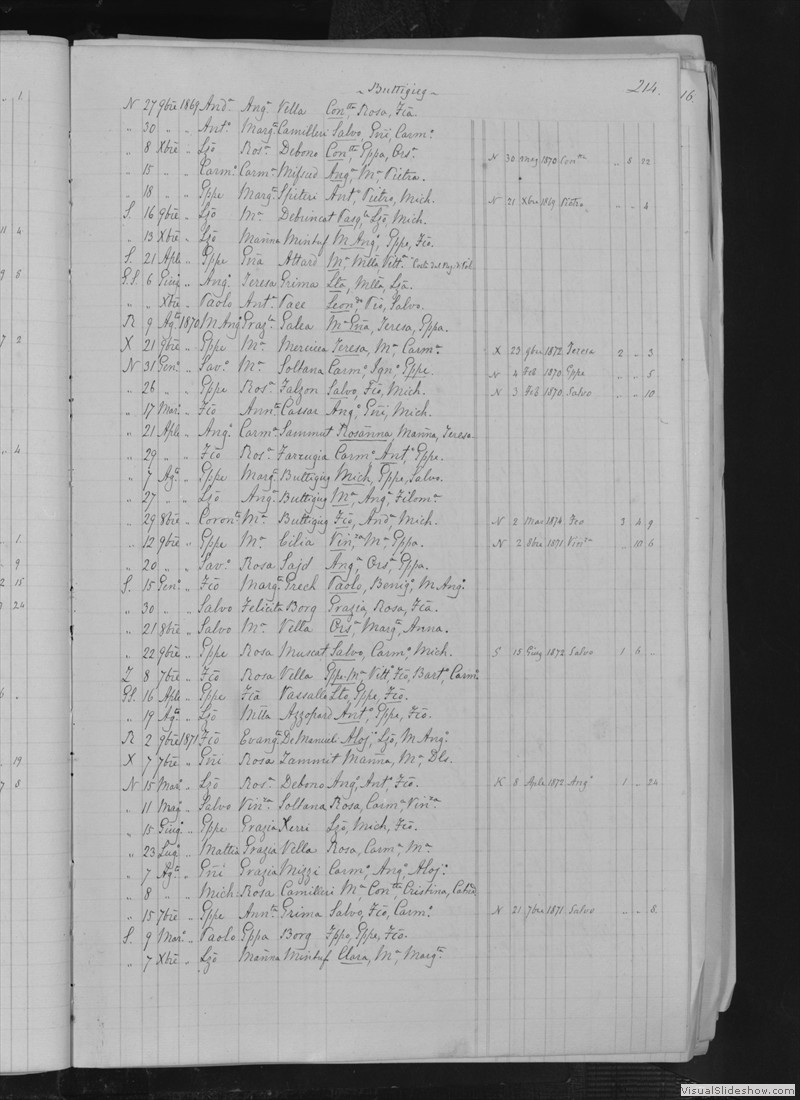 ~ Buttigieg ~ 214.
N 27 9bre 1869 And.a Ang.a Vella Con.tta, Rosa, Fca.
" 30 " " Ant.o Marg.a Camilleri Salvo, Gni, Carm.o
" 8 Xbre " Lzo Ros.a Debono Con.tta, Gppa, Ors.a N 30 Mag 1870 Con.tta " 5 22
" 15 " " Carm.o Carm.a Mifsud Ang.a, M.a Pietra.
" 18 " " Gppe Marg.a Spiteri Ant.o, Pietro, Mich. N 21 Xbre 1869 Pietro " " 4
S. 16 9bre " Lzo M.a Debrincat Pasq.le Lzo Mich.
" 13 Xbre " Lzo Manna Mintuf M Ang.o, Gppe, Fco.
S. 21 Aple " Gppe Gna Attard M.a Mtta, Vitt.a
GS. 6 Giug " Ang.o Teresa Grima Lta, Mtta, Lza.
" " Xbre " Paolo Ant.a Pace Leon.do Pio, Salvo.
R 9 Ag.to 1870 M Ang.o Graz.la Galea M.a Gna, Teresa, Gppa.
X 21 9bre " Gppe M.a Mercieca Teresa, M.a Carm.a X 23 9bre 1872 Teresa 2 " 3
N 31 Gen.o " Sav.o M.a Soltana Carm.o Ign.o Gppe. N 4 Feb 1870 Gppe " " 5
" 26 " " Gppe Ros.a Falzon Salvo, Fco, Mich. N 3 Feb 1870 Salvo " " 10
" 17 Mar.o " Fco Ann.a Cassar Ang.o, Gni, Mich.
" 21 Aple " Ang.o Carm.a Sammut Rosanna, Manna, Teresa
" 29 " " Fco Ros.a Farrugia Carm.o Ant.o, Gppe.
" 7 Ag.to " Gppe Marg.a Buttigieg Mich, Gppe, Salvo.
" 27 " " Lzo Ang.a Buttigieg M.a, Ang.a, Filom.a
" 29 8bre " Coron.to M.a Buttigieg Fco, And.a Mich. N 2 Mar 1874 Fco 3 4 9
" 12 9bre " Gppe M.a Cilia Vin.za, M.a, Gppa. N 2 8bre 1871 Vin.za " 10 6
" 20 " " Sav.o Rosa Sajd Ang.a Ors.a Gppa.
S. 15 Gen.o " Fco Marg.a Grech Paolo, Benig.o, M Ang.o
" 30 " " Salvo Felicita Borg Grazia, Rosa, Fca.
" 21 8bre " Salvo M.a Vella Ors.a Marg.a, Anna.
" 22 9bre " Gppe Rosa Muscat Salvo, Carm.o Mich. S 15 Giug 1872 Salvo 1 6 "
Z 8 7bre " Fco Rosa Vella Gppe M.a Vitt.o Fco, Bart.o Carm.o
GS. 16 Aple " Gppe Fca Vassallo Lto, Gppe, Fco.
" 19 Ag.to " Lzo Mtta Azzopard Ant.o, Gppe, Fco.
R 2 9bre 1871 Fco Evang.a De Manuel Aloj.o, Lzo, M Ang.o
X 7 7bre " Gni Rosa Zammit Manna, M.a Dls.
N 15 Mar.o " Lzo Ros.a Debono Ang.o, Ant.o, Fco. K 8 Aple 1872 Ang.o 1 " 24
" 11 Mag " Salvo Vin.za Soltana Rosa, Carm.a, Vin.za
" 15 Giug.o " Gppe Grazia Xerri Lzo, Mich, Fco.
" 23 Lug.o " Mattia Grazia Vella Rosa, Carm.a, M.a
" 7 Ag.to " Gni Grazia Mizzi Carm.o, Ang.o, Aloj.o
" 8 " " Mich Rosa Camilleri M.a Con.tta Cristina
" 15 7bre " Gppe Ann.a Grima Salvo, Fco, Carm.o N 21 7bre 1871 Salvo " " 8
S. 9 Mar.o " Paolo Gppa Borg Fppo, Gppe, Fco.
" 7 Xbre " Lzo Manna Mintuf Clara, M.a, Marg.a
VisualSlideshow.com